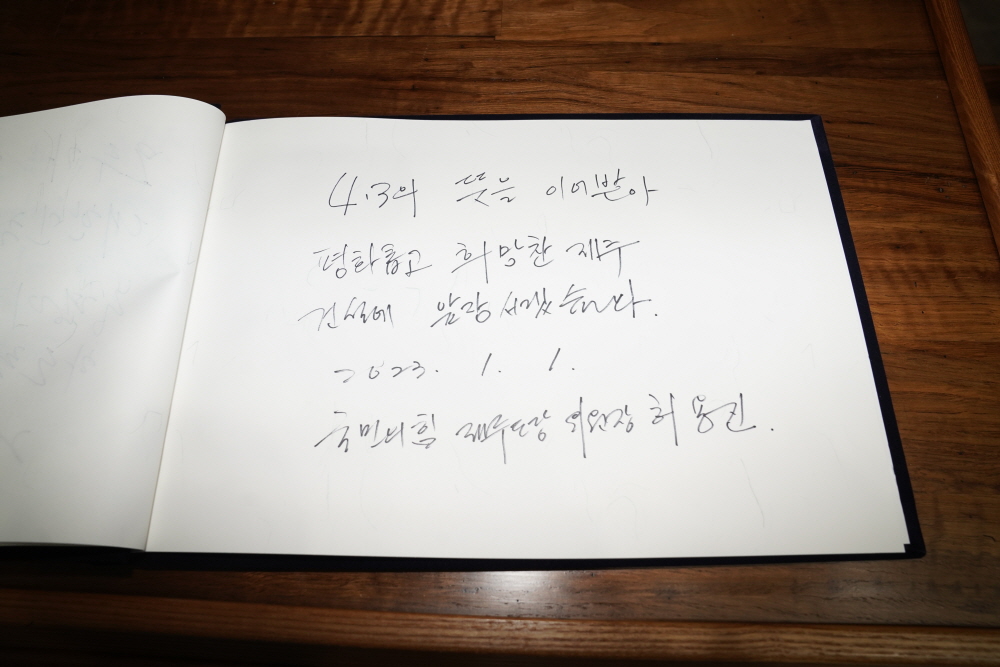 4·3의 뜻을 이어받아
평화롭고 희망찬 제주
건설에 앞장 서겠습니다.
2023. 1. 1.
국민의힘 제주도당 위원장 허용진.